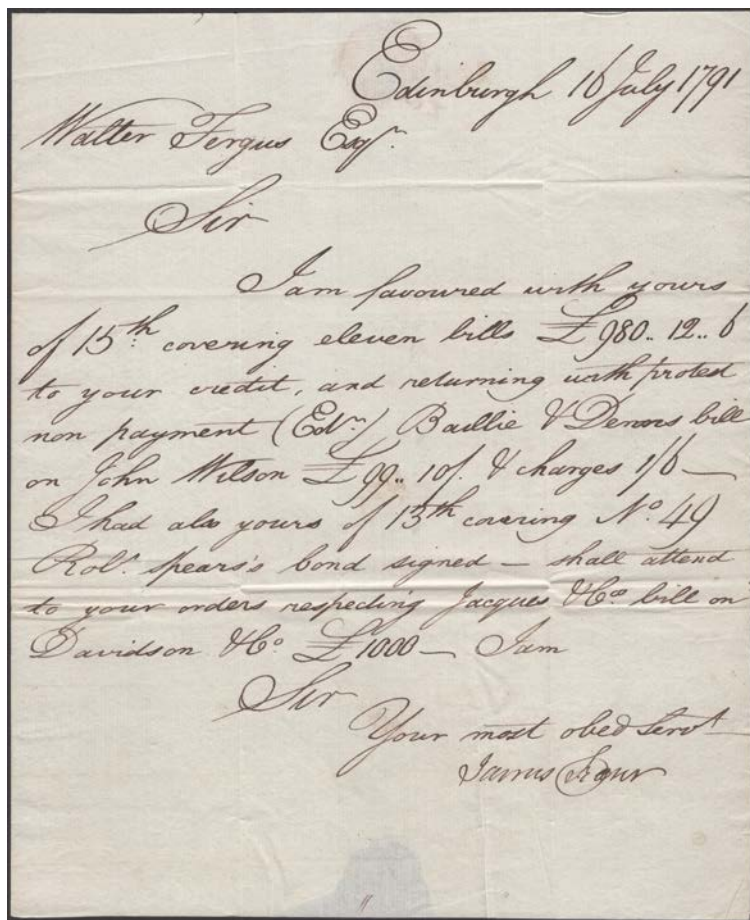 Edinburgh 16 July 1791
Walter Fergus Esqr.
Sir
I am favoured with yours
of 15th covering eleven bills £980.. 12.. 6
to your credit, and returning with protest
non payment (Edr.) Baillie & bill
on John Wilson £99.. 10/. & charges 1/6 —
I had also yours of 13th covering No. 49
Robt. Spears's bond signed — shall attend
to your orders respecting Jacques & Co. bill on
Davidson & Co. £1000 — I am
Sir
Your most obed Servt
James